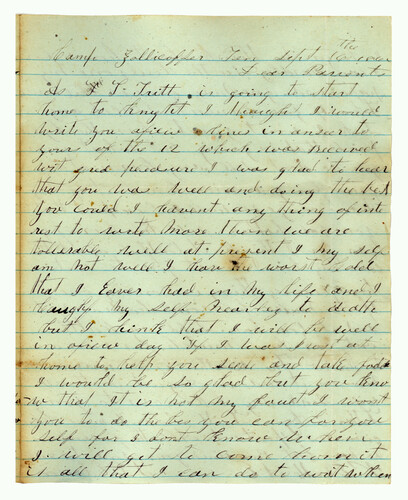 Camp Zollicoffer Ten Sept the
Dear Parents
As F L Tritt is going to Start
home to Knight I thought I would
write you afiew lines in answer to
yours of the 12 which was received
wit gred pleasure I was glad to hear
that you was well and doing the best
you could I havent any thing of inte
rest to write more then we are
tollerable well at present I my self
am not well I have the worst Cold
that I Eaver had in my life and I
Caughf my self Nearley to death
but I think that I will be well
in afiew day If I was at
home to help you seed and take fode
I would be so glad but you kno
w that it is not my fault I wont
you to do the bes you can for you
self for I dont know when
I will get to come hom it
is all that I can do to wait when